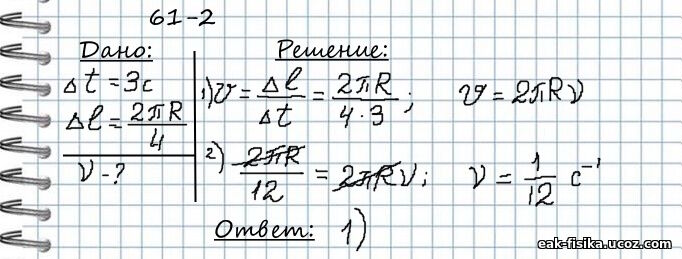 61-2
Дано:
Δt = 3c
Δl = 2πR/4
ν - ?
Решение:
1) v = Δl/Δt = 2πR/4·3 ; v = 2πRν
2) 2πR/12 = 2πRν; ν = 1/12 c⁻¹
Ответ: 1)
eak-fisika.ucoz.com